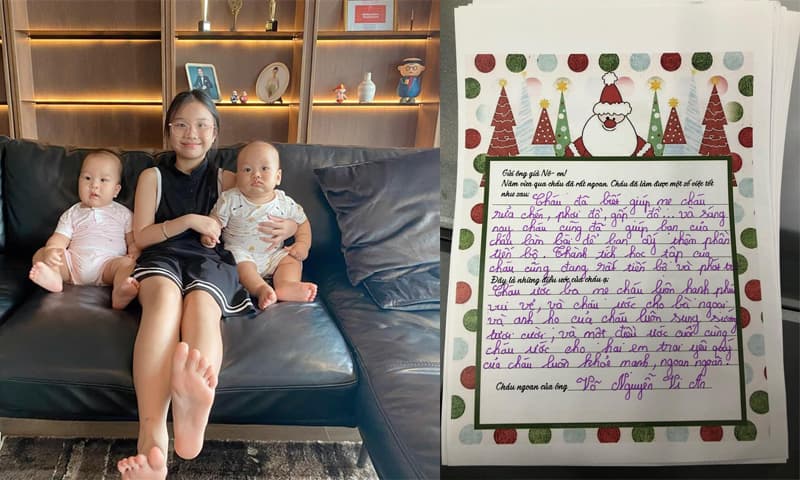 Gửi ông già Nô-en!
Năm vừa qua cháu đã rất ngoan. Cháu đã làm được một số việc tốt
như sau: Cháu đã biết giúp mẹ cháu
rửa chén, phơi đồ, gấp đồ... và sáng
nay cháu cũng đã giúp bạn của
cháu làm bài để bạn ấy thêm phần
tiến bộ. Thành tích học tập của
cháu cũng đang rất tiến bộ và phát
Đây là những điều ước của cháu ạ:
Cháu ước ba mẹ cháu luôn hạnh phúc
vui vẻ, và cháu ước cho bà ngoại
và anh họ của cháu luôn sung sướng
tươi cười, và một điều ước cuối cùng
cháu ước cho hai em trai yêu quý
của cháu luôn khoẻ mạnh, ngoan ngoãn.
Cháu ngoan của ông Võ Nguyễn Vi An